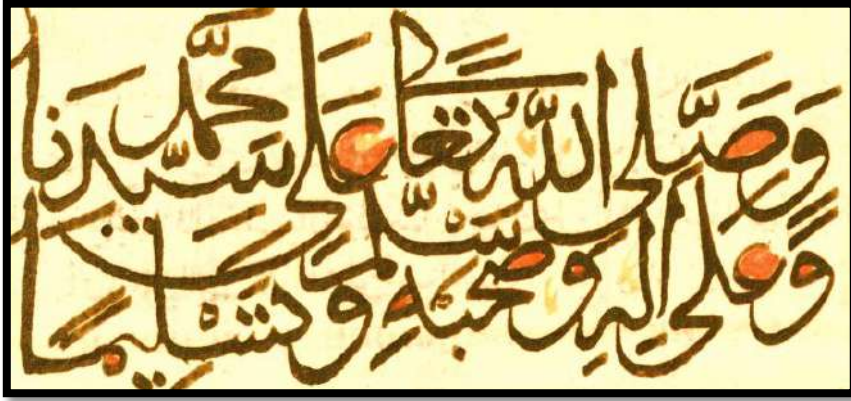 وَصَلَّى اللَّهُ تَعَالَى عَلَى سَيِّدِنَا مُحَمَّد
وَعَلَى الِهِ وَصَحْبِهِ وَسَلَّمَ تَسْلِيمًا